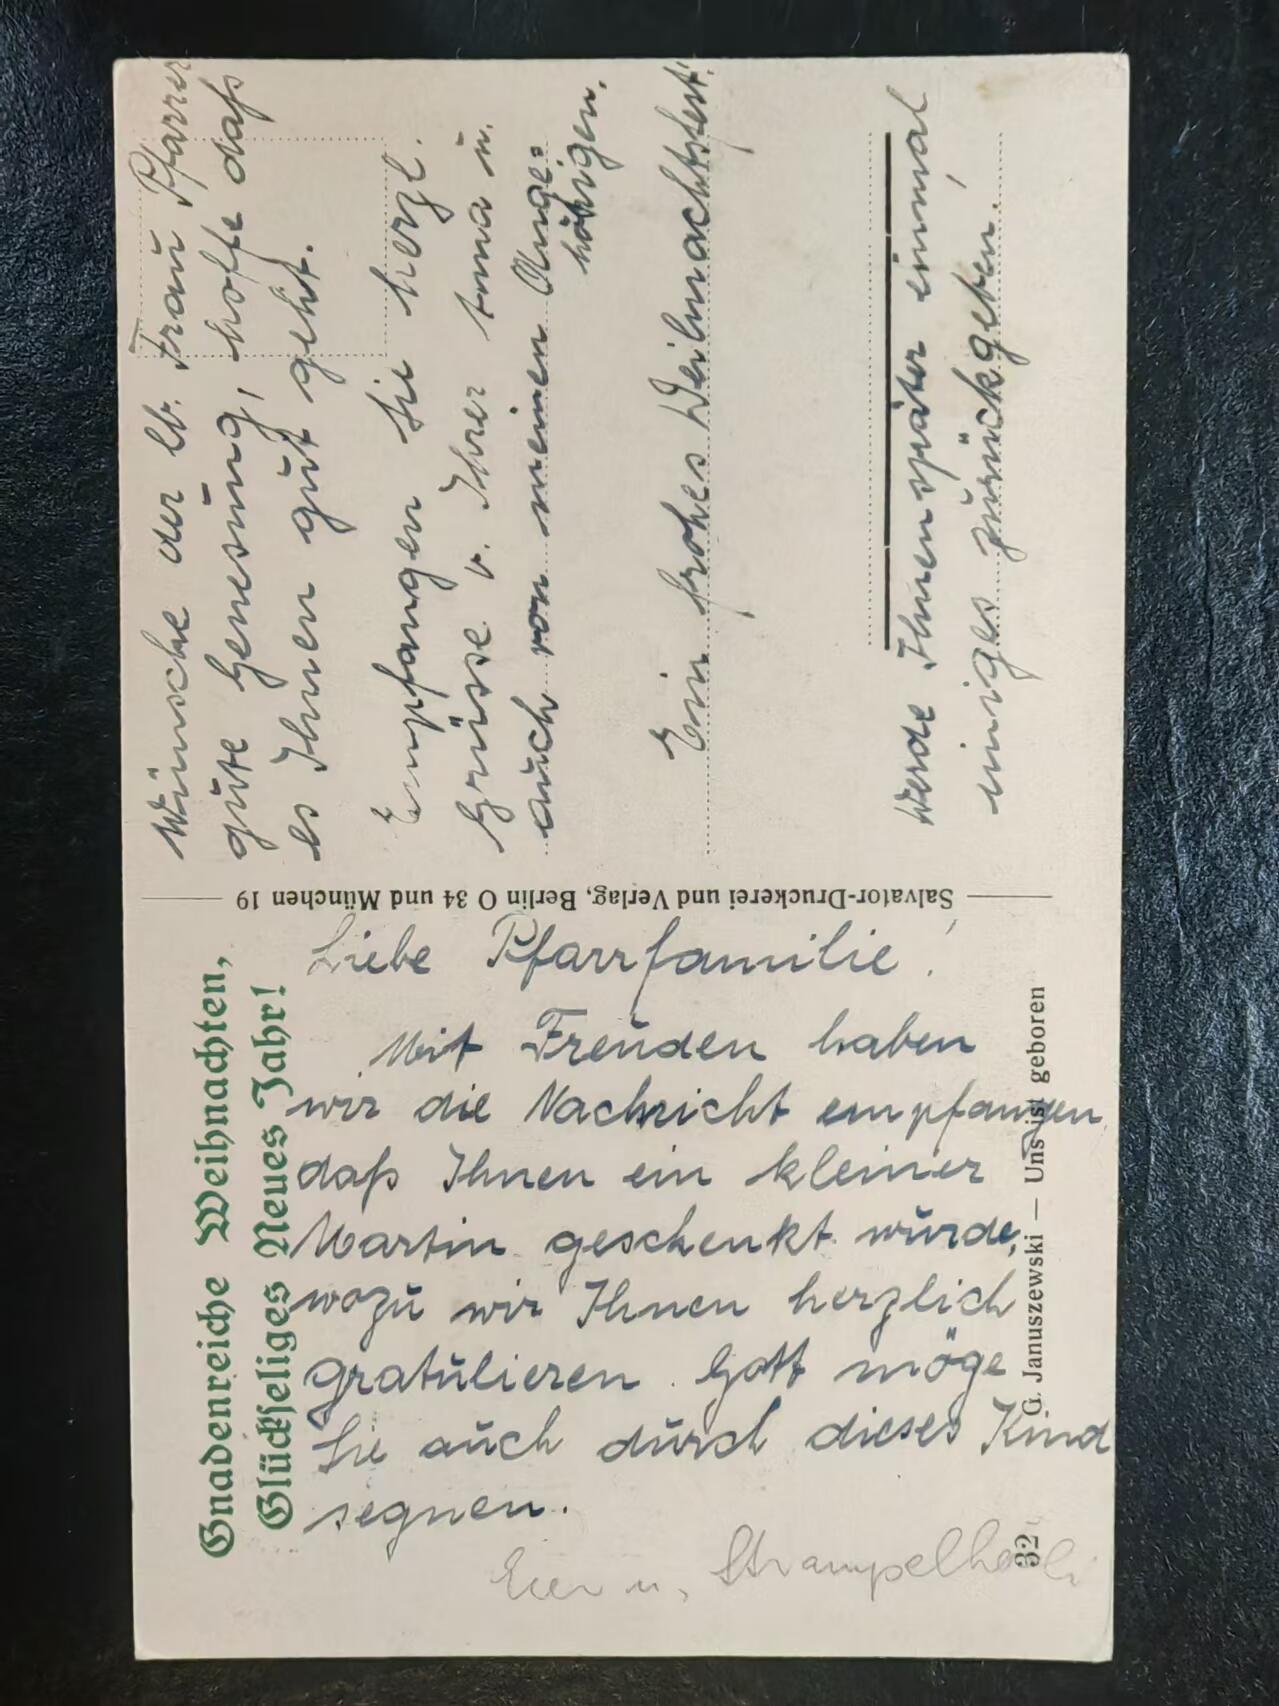 Gnadenreiche Weihnachten,
Glückseliges Neues Jahr!
Liebe Pfarrfamilie!
Mit Freuden haben
wir die Nachricht empfangen
daß Ihnen ein kleiner
Martin geschenkt wurde,
wozu wir Ihnen herzlich
gratulieren. Gott möge
Sie auch durch dieses Kind
segnen.
Eier u.
32
G. Januszewski — Uns ist geboren
Salvator-Druckerei und Verlag, Berlin O 34 und München 19
Wünsche der lb. Frau Pfarrer
gute Genesung, hoffe daß
es Ihnen gut geht.
Empfangen Sie herzl.
Grüsse v. Ihrer Anna u.
auch von meinen Ange=
hörigen.
Ein frohes Weihnachtsfest!
Werde Ihnen später einmal
einiges zurückgeben!